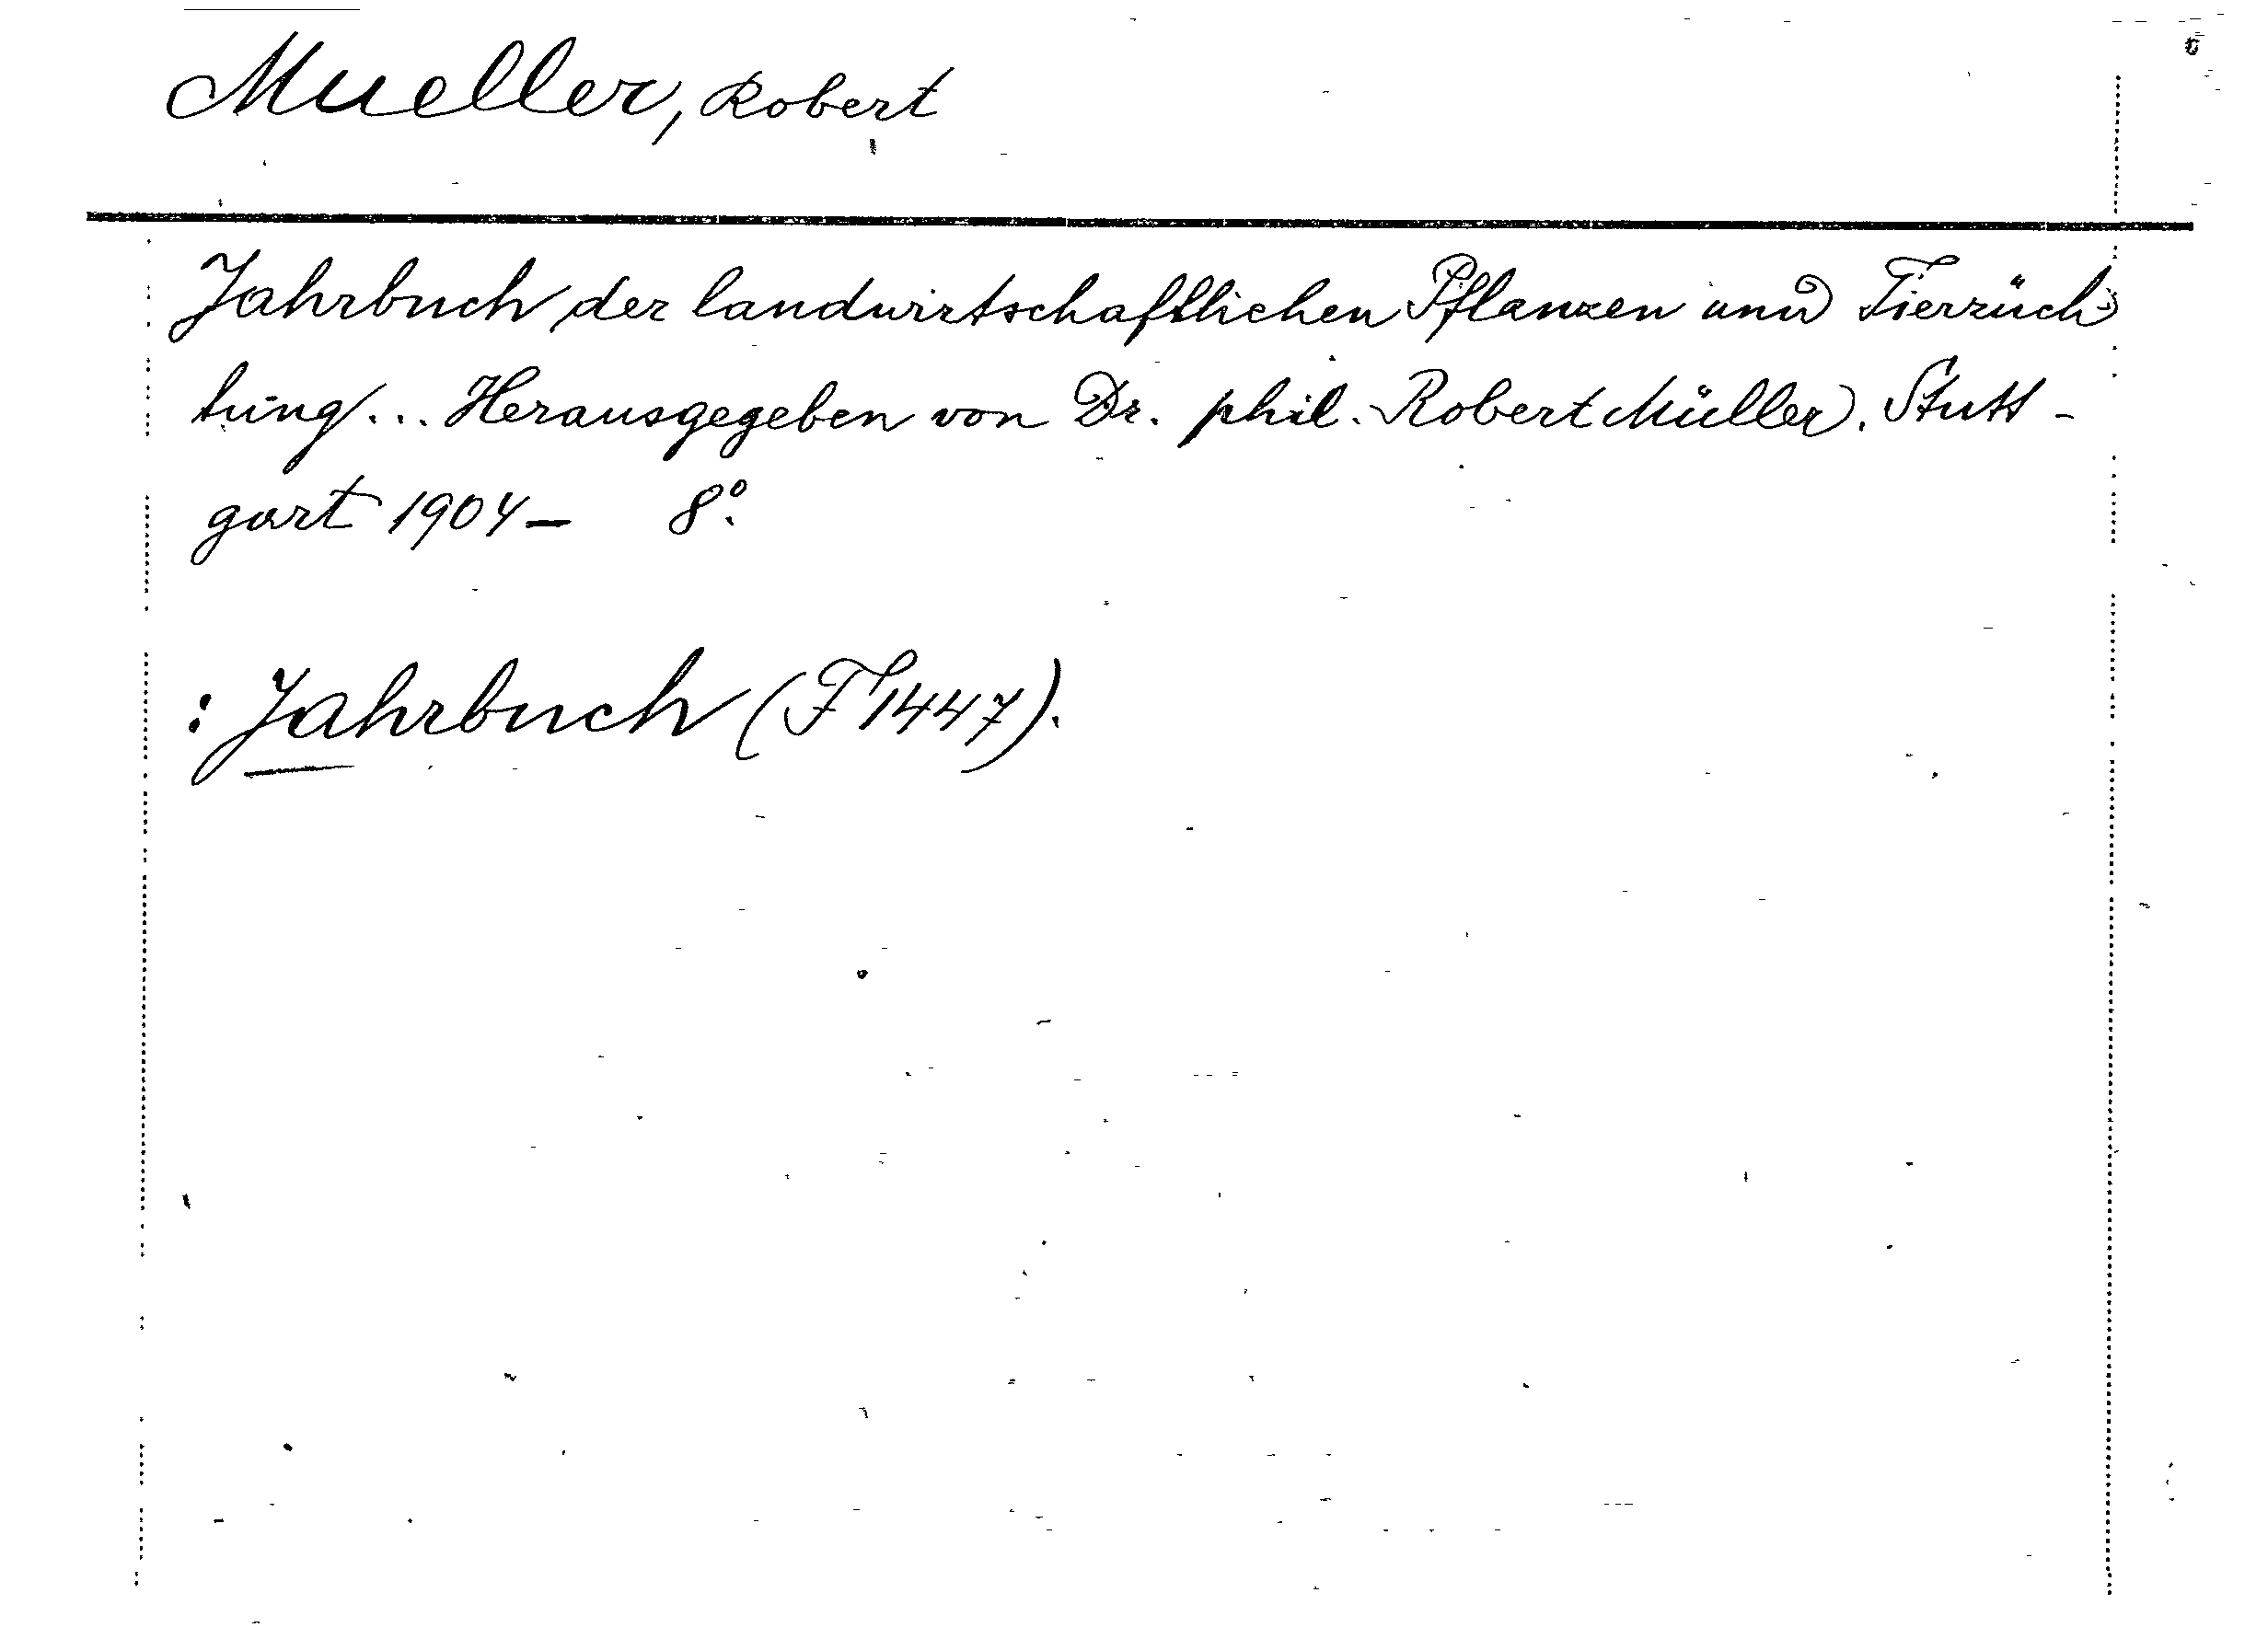 Mueller, Robert
Jahrbuch der landwirtschaftlichen Pflanzen und Tierzüch-
tung... Herausgegeben von Dr. phil. Robert Müller. Stutt-
gart 1904- 8°.
: Jahrbuch (F 1447).